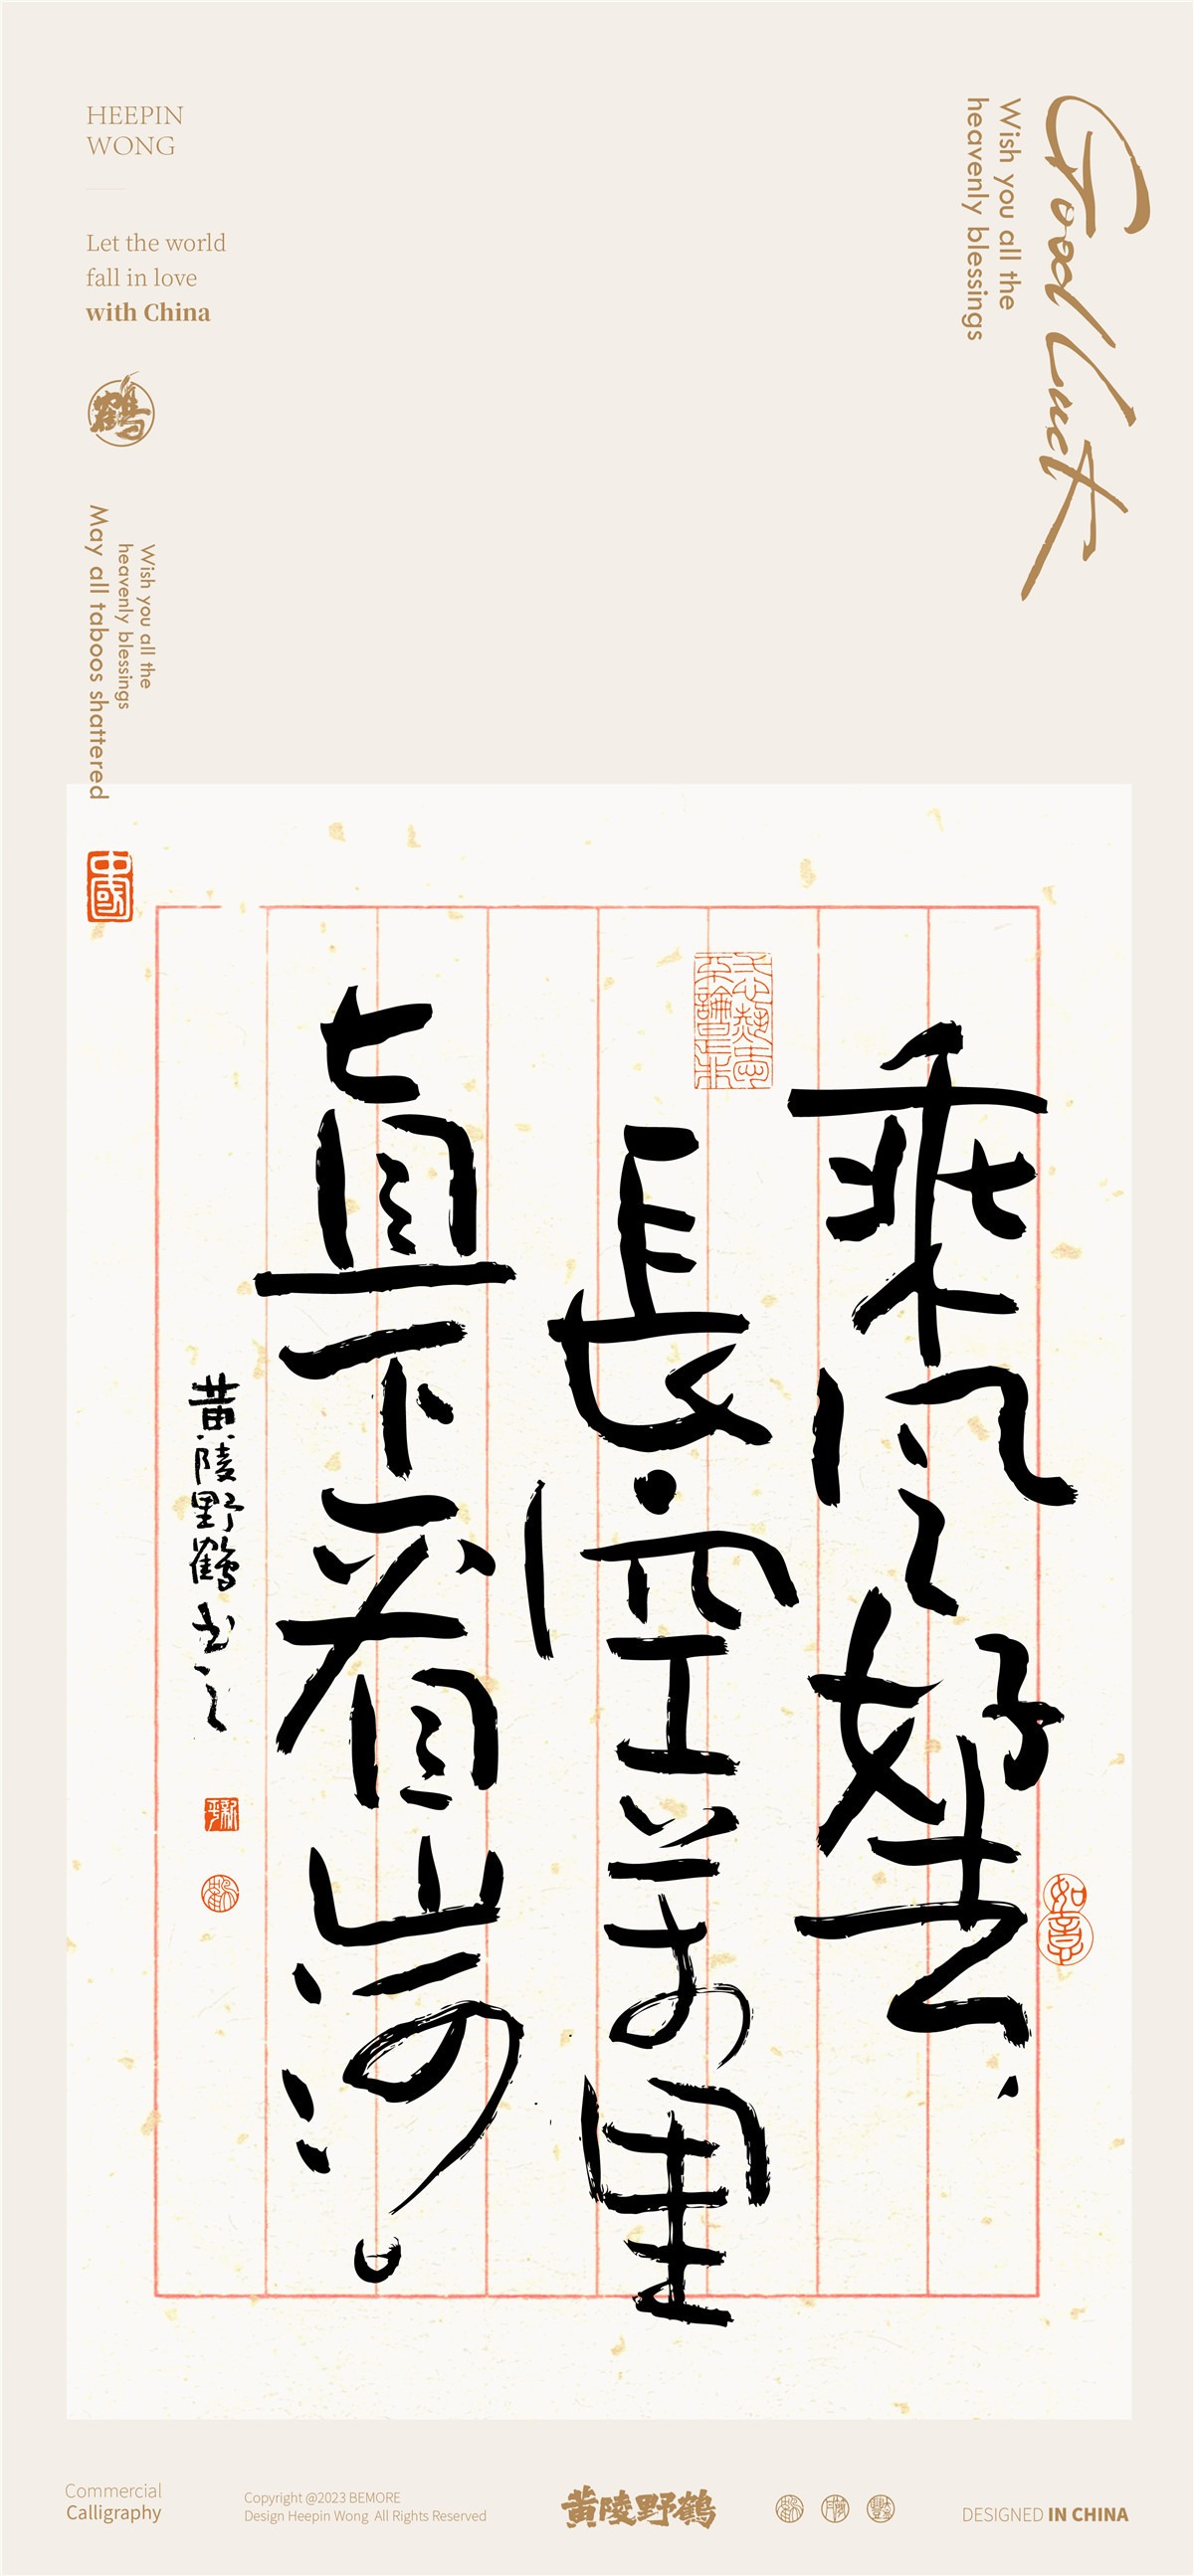 HEEPIN
WONG
Let the world
fall in love
with China
鶴
Good luck
Wish you all the
heavenly blessings
Wish you all the
heavenly blessings
May all taboos shattered
中國
乘风好去，
長空萬里
直下看山河。
黄陵野鶴书之
如意
Commercial
Calligraphy
Copyright @2023 BEMORE
Design Heepin Wong All Rights Reserved
黄陵野鶴
DESIGNED IN CHINA